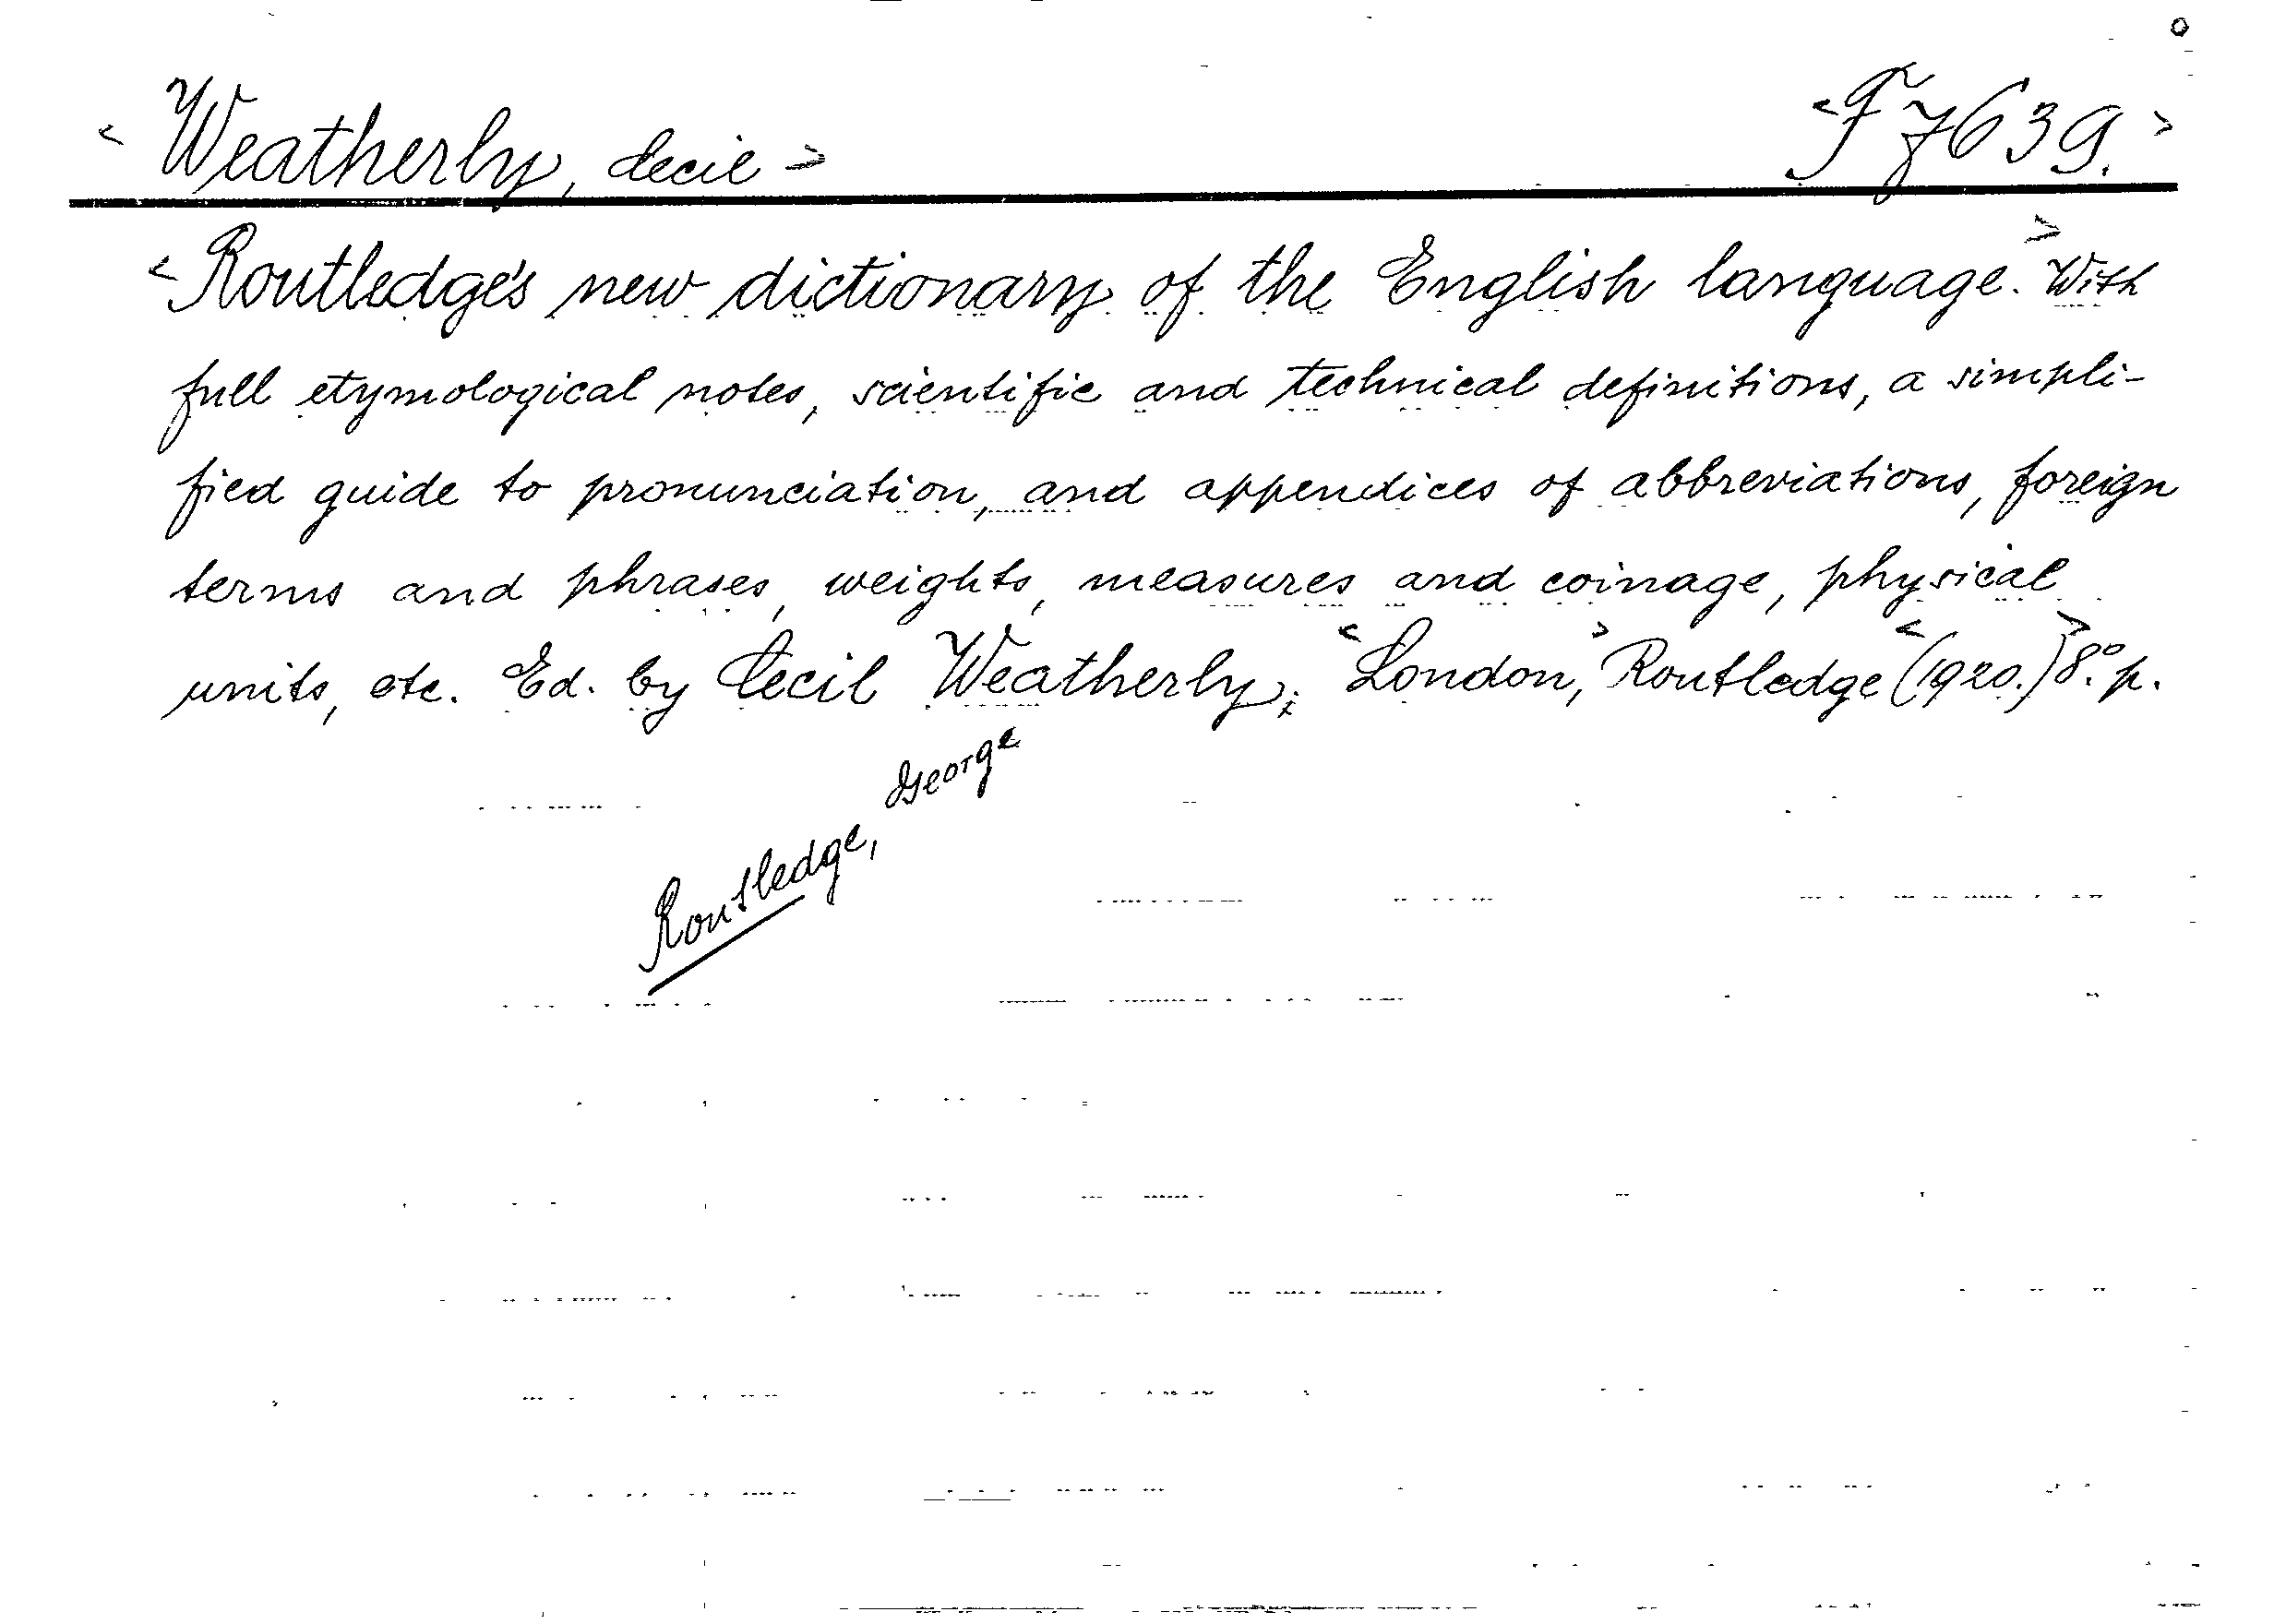 < Weatherly, Cecil > < F 7639. >
< Routledge's new dictionary of the English language. > With
full etymological notes, scientific and technical definitions, a simpli-
fied guide to pronunciation, and appendices of abbreviations, foreign
terms and phrases, weights, measures and coinage, physical
units, etc. Ed. by Cecil Weatherly. < London, > Routledge < (1920.) > 8° p.
Routledge, George